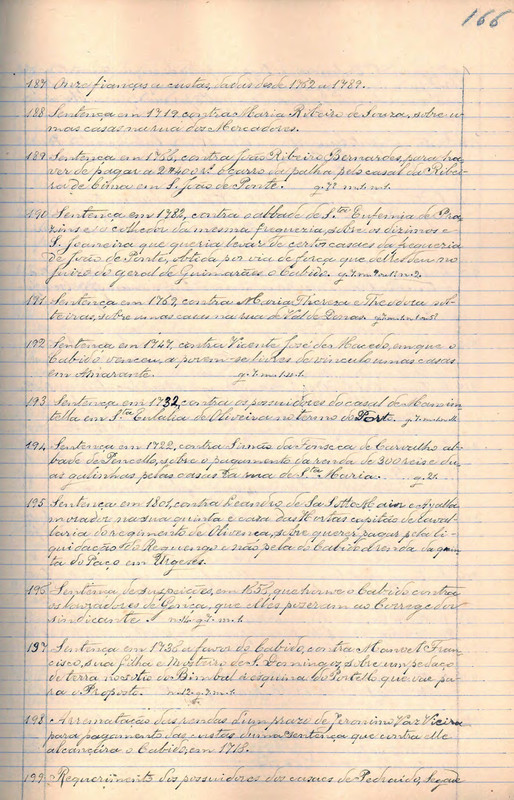 166
187 Onze fianças a custas, dadas desde 1762 a 1789.
188 Sentença em 1719 contra Maria Ribeiro de Souza, sobre u-
mas casas na rua dos Mercadores.
189 Sentença em 1766, contra João Ribeiro Bernardes, para ha-
ver de pagar a 2#400 rs. o carro da palha pelo casal da Ribei-
ra de Cima em S. João de Ponte.
190 Sentença em 1782, contra o abbade de S.ta Eufemia de Pra-
zins e o collector da mesma freguezia, sobre os dizimos e
S. Joaneira que queria levar de certos casaes da freguezia
de João de Ponte, obtida por via de força que deu no
juizo do geral de Guimarães o Cabido.
191 Sentença em 1762, contra Maria Thereza e Theodora sol-
teiras, sobre umas casas na rua de Val de Donas
192 Sentença em 1747, contra Vicente José de Macedo, em que o
Cabido venceu, a provem-se livres de vinculo umas casas
em Amarante.
193 Sentença em 1732, contra os possuidores do casal de Mamin-
tella em S.ta Eulalia de Oliveira no termo do Porto.
194 Sentença em 1722, contra Simão da Fonseca de Carvalho ab-
bade de Pencello, sobre o pagamento da renda de 300 reis e du-
as galinhas, pelas casas da rua de S.ta Maria.
195 Sentença em 1801, contra Leandro de Sa Sotto Maior e Ayalla
morador na sua quinta e casa das Hortas capitão de caval-
laria do regimento de Olivença, sobre querer pagar pela li-
quidação do Reguengo e não pela do Cabido a renda da quin-
ta do Paço em Urgeses.
196 Sentença de suspeições, em 1653, que houve o Cabido contra
os louvadores de Gonça, que elles pozeram ao Corregedor
sindicante.
197 Sentença em 1736 a favor do Cabido, contra Manoel Fran-
cisco, sua filha e Mosteiro de S. Domingos, sobre um pedaço
de terra no sitio do Bimbal á esquina do Portello, que vae pa-
ra o Proposto.
198 Arrematação das rendas d'um prazo de Jeronimo Vaz Vieira
para pagamento das custas duma sentença que contra elle
alcançára o Cabido, em 1718.
199 Requerimento dos possuidores dos casaes de Pedraido,